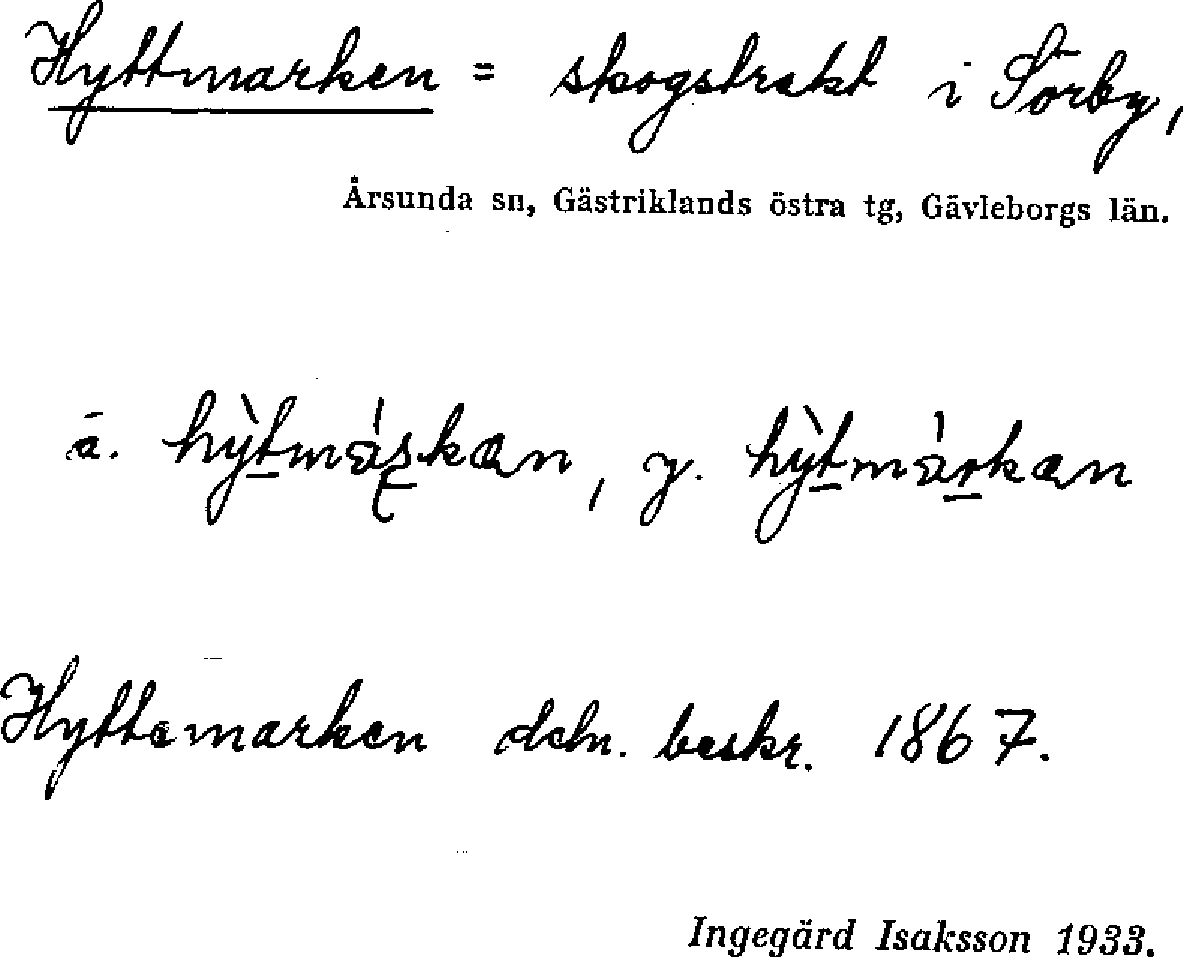 Hyttmarken = skogstrakt i Sörby,
Årsunda sn, Gästriklands östra tg, Gävleborgs län.
ä. hỳtmàrkan, y. hỳtmàrkan
Hyttemarken deln. beskr. 1867.
Ingegärd Isaksson 1933.